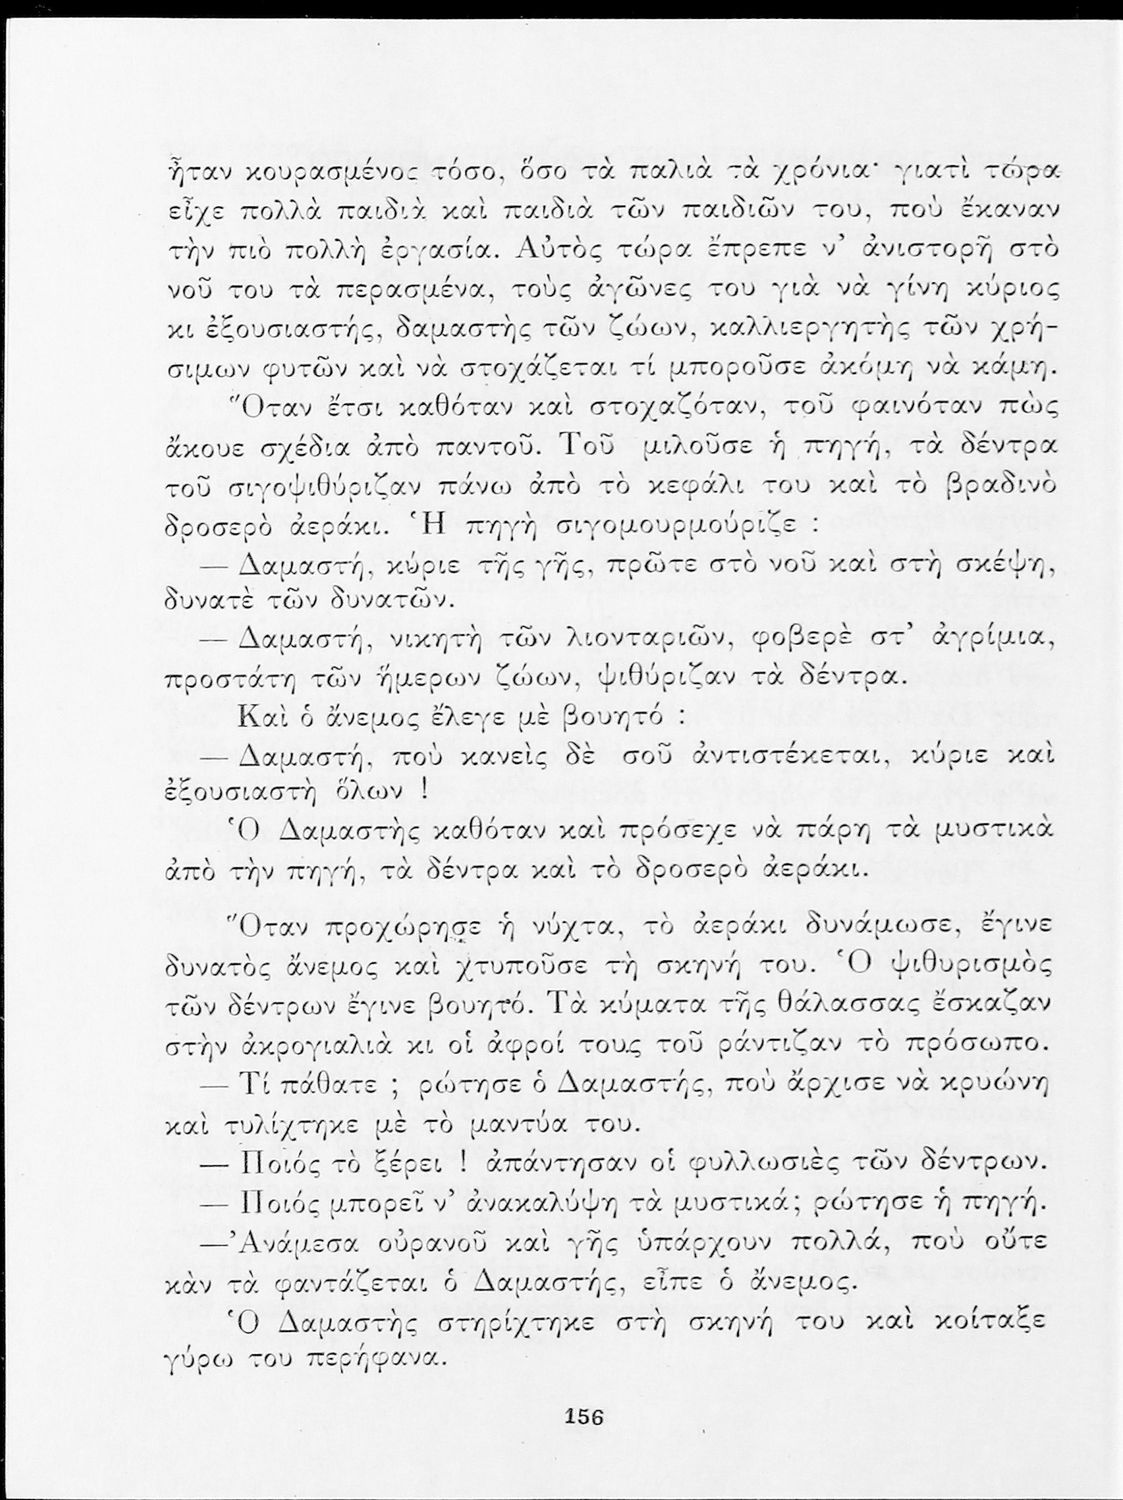 ἦταν κουρασμένος τόσο, ὅσο τὰ παλιὰ τὰ χρόνια· γιατὶ τώρα
εἶχε πολλὰ παιδιὰ καὶ παιδιὰ τῶν παιδιῶν του, ποὺ ἔκαναν
τὴν πιὸ πολλὴ ἐργασία. Αὐτὸς τώρα ἔπρεπε ν’ ἀνιστορῆ στὸ
νοῦ του τὰ περασμένα, τοὺς ἀγῶνες του γιὰ νὰ γίνη κύριος
κι ἐξουσιαστής, δαμαστὴς τῶν ζώων, καλλιεργητὴς τῶν χρή-
σιμων φυτῶν καὶ νὰ στοχάζεται τί μποροῦσε ἀκόμη νὰ κάμη.
Ὅταν ἔτσι καθόταν καὶ στοχαζόταν, τοῦ φαινόταν πὼς
ἄκουε σχέδια ἀπὸ παντοῦ. Τοῦ μιλοῦσε ἡ πηγή, τὰ δέντρα
τοῦ σιγοψιθύριζαν πάνω ἀπὸ τὸ κεφάλι του καὶ τὸ βραδινὸ
δροσερὸ ἀεράκι. Ἡ πηγὴ σιγομουρμούριζε :
— Δαμαστή, κύριε τῆς γῆς, πρῶτε στὸ νοῦ καὶ στὴ σκέψη,
δυνατὲ τῶν δυνατῶν.
— Δαμαστή, νικητὴ τῶν λιονταριῶν, φοβερὲ στ’ ἀγρίμια,
προστάτη τῶν ἥμερων ζώων, ψιθύριζαν τὰ δέντρα.
Καὶ ὁ ἄνεμος ἔλεγε μὲ βουητό :
— Δαμαστή, ποὺ κανεὶς δὲ σοῦ ἀντιστέκεται, κύριε καὶ
ἐξουσιαστὴ ὅλων !
Ὁ Δαμαστὴς καθόταν καὶ πρόσεχε νὰ πάρη τὰ μυστικὰ
ἀπὸ τὴν πηγή, τὰ δέντρα καὶ τὸ δροσερὸ ἀεράκι.
Ὅταν προχώρησε ἡ νύχτα, τὸ ἀεράκι δυνάμωσε, ἔγινε
δυνατὸς ἄνεμος καὶ χτυποῦσε τὴ σκηνή του. Ὁ ψιθυρισμὸς
τῶν δέντρων ἔγινε βουητό. Τὰ κύματα τῆς θάλασσας ἔσκαζαν
στὴν ἀκρογιαλιὰ κι οἱ ἀφροί τους τοῦ ράντιζαν τὸ πρόσωπο.
— Τί πάθατε ; ρώτησε ὁ Δαμαστής, ποὺ ἄρχισε νὰ κρυώνη
καὶ τυλίχτηκε μὲ τὸ μαντύα του.
— Ποιός τὸ ξέρει ! ἀπάντησαν οἱ φυλλωσιὲς τῶν δέντρων.
— Ποιός μπορεῖ ν’ ἀνακαλύψη τὰ μυστικά; ρώτησε ἡ πηγή.
—Ἀνάμεσα οὐρανοῦ καὶ γῆς ὑπάρχουν πολλά, ποὺ οὔτε
κὰν τὰ φαντάζεται ὁ Δαμαστής, εἶπε ὁ ἄνεμος.
Ὁ Δαμαστὴς στηρίχτηκε στὴ σκηνή του καὶ κοίταξε
γύρω του περήφανα.
156